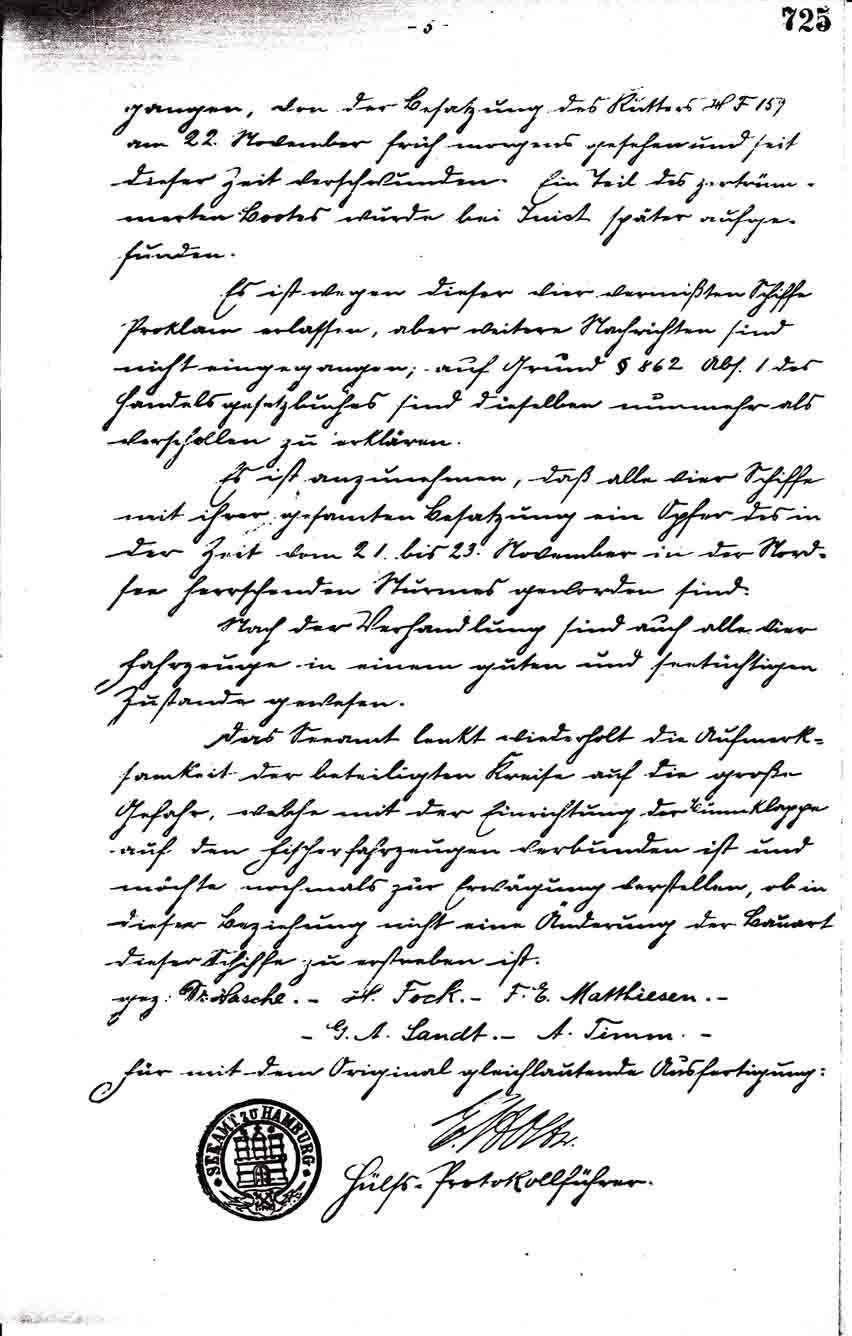 725
- 5 -
gangen, von der Besatzung des Kutters H F 159
am 22. November früh morgens gesehen und seit
dieser Zeit verschwunden. Ein Teil des zertrüm-
merten Bootes wurde bei Juist später aufge-
funden.
Es ist wegen dieser vier vermißten Schiffe
Proklam erlassen, aber weitere Nachrichten sind
nicht eingegangen; auf Grund § 862 Abs. 1 des
Handelsgesetzbuches sind dieselben nunmehr als
verschollen zu erklären.
Es ist anzunehmen, daß alle vier Schiffe
mit ihrer gesamten Besatzung ein Opfer des in
der Zeit vom 21. bis 23. November in der Nord-
see herrschenden Sturmes geworden sind.
Nach der Verhandlung sind auch alle vier
Fahrzeuge in einem guten und seetüchtigen
Zustande gewesen.
Das Seeamt lenkt wiederholt die Aufmerk-
samkeit der beteiligten Kreise auf die große
Gefahr, welche mit der Einrichtung der Bünnklappe
auf den Fischerfahrzeugen verbunden ist und
möchte nochmals zur Erwägung verstellen, ob in
dieser Beziehung nicht eine Änderung der Bauart
dieser Schiffe zu erstreben ist.
gez: Dr. Hasche. - H. Fock. - F. E. Matthiesen. -
- G. A. Landt. - A. Timm. -
Für mit dem Original gleichlautende Ausfertigung:
SEEAMT ZU HAMBURG
Hülfs-Protokollführer.